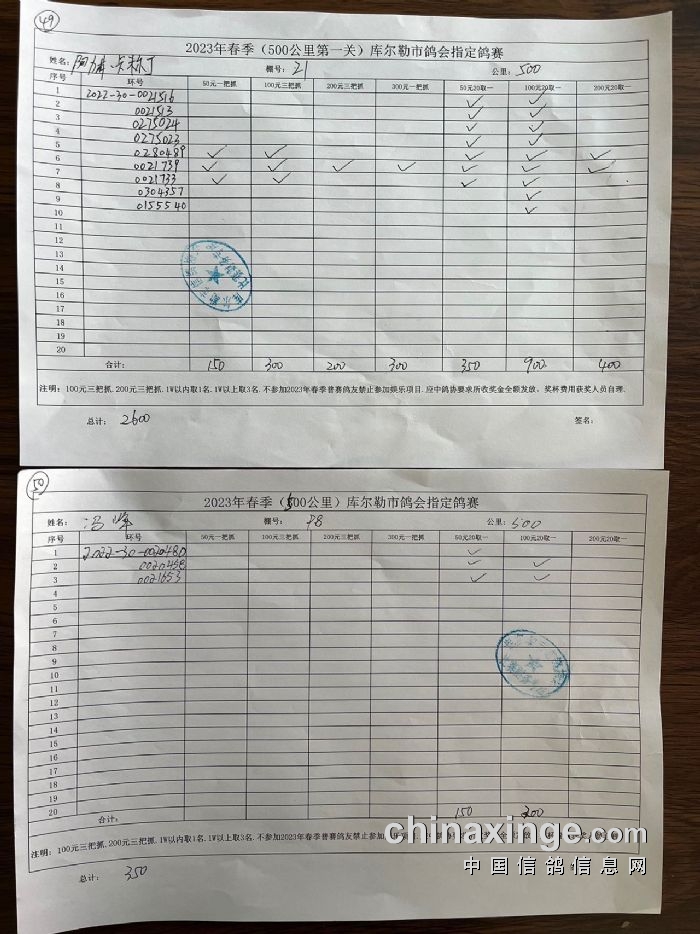 49
2023年春季（500公里第一关）库尔勒市鸽会指定鸽赛
姓名： 棚号：21 公里：500
序号 环号 50元一把抓 100元三把抓 200元三把抓 300元一把抓 50元20取一 100元20取一 200元20取一
1 2022-30-0021516 ✓ ✓
2 0021513 ✓ ✓
3 0275024 ✓ ✓
4 0275023 ✓ ✓
5 0280489 ✓ ✓ ✓ ✓ ✓
6 0021739 ✓ ✓ ✓ ✓ ✓ ✓ ✓
7 0021733 ✓ ✓ ✓ ✓
8 0304357 ✓
9 0155540 ✓
10
11
12
13
14
15
16
17
18
19
20
合计： 150 300 200 300 350 900 400
注明：100元三把抓.200元三把抓.1W以内取1名.1W以上取3名.不参加2023年春季普赛鸽友禁止参加娱乐项目.应中鸽协要求所收奖金全额发放，奖杯费用获奖人员自理.
总计：2600 签名：
50
2023年春季（500公里）库尔勒市鸽会指定鸽赛
姓名：冯峰 棚号：98 公里：500
序号 环号 50元一把抓 100元三把抓 200元三把抓 300元一把抓 50元20取一 100元20取一 200元20取一
1 2022-30-0020480 ✓
2 0020458 ✓ ✓
3 0021653 ✓ ✓
4
5
6
7
8
9
10
11
12
13
14
15
16
17
18
19
20
合计： 150 200
注明：100元三把抓.200元三把抓.1W以内取1名.1W以上取3名.不参加2023年春季普赛鸽友禁止参加
总计：350
chinaxinge.com
中国信鸽信息网